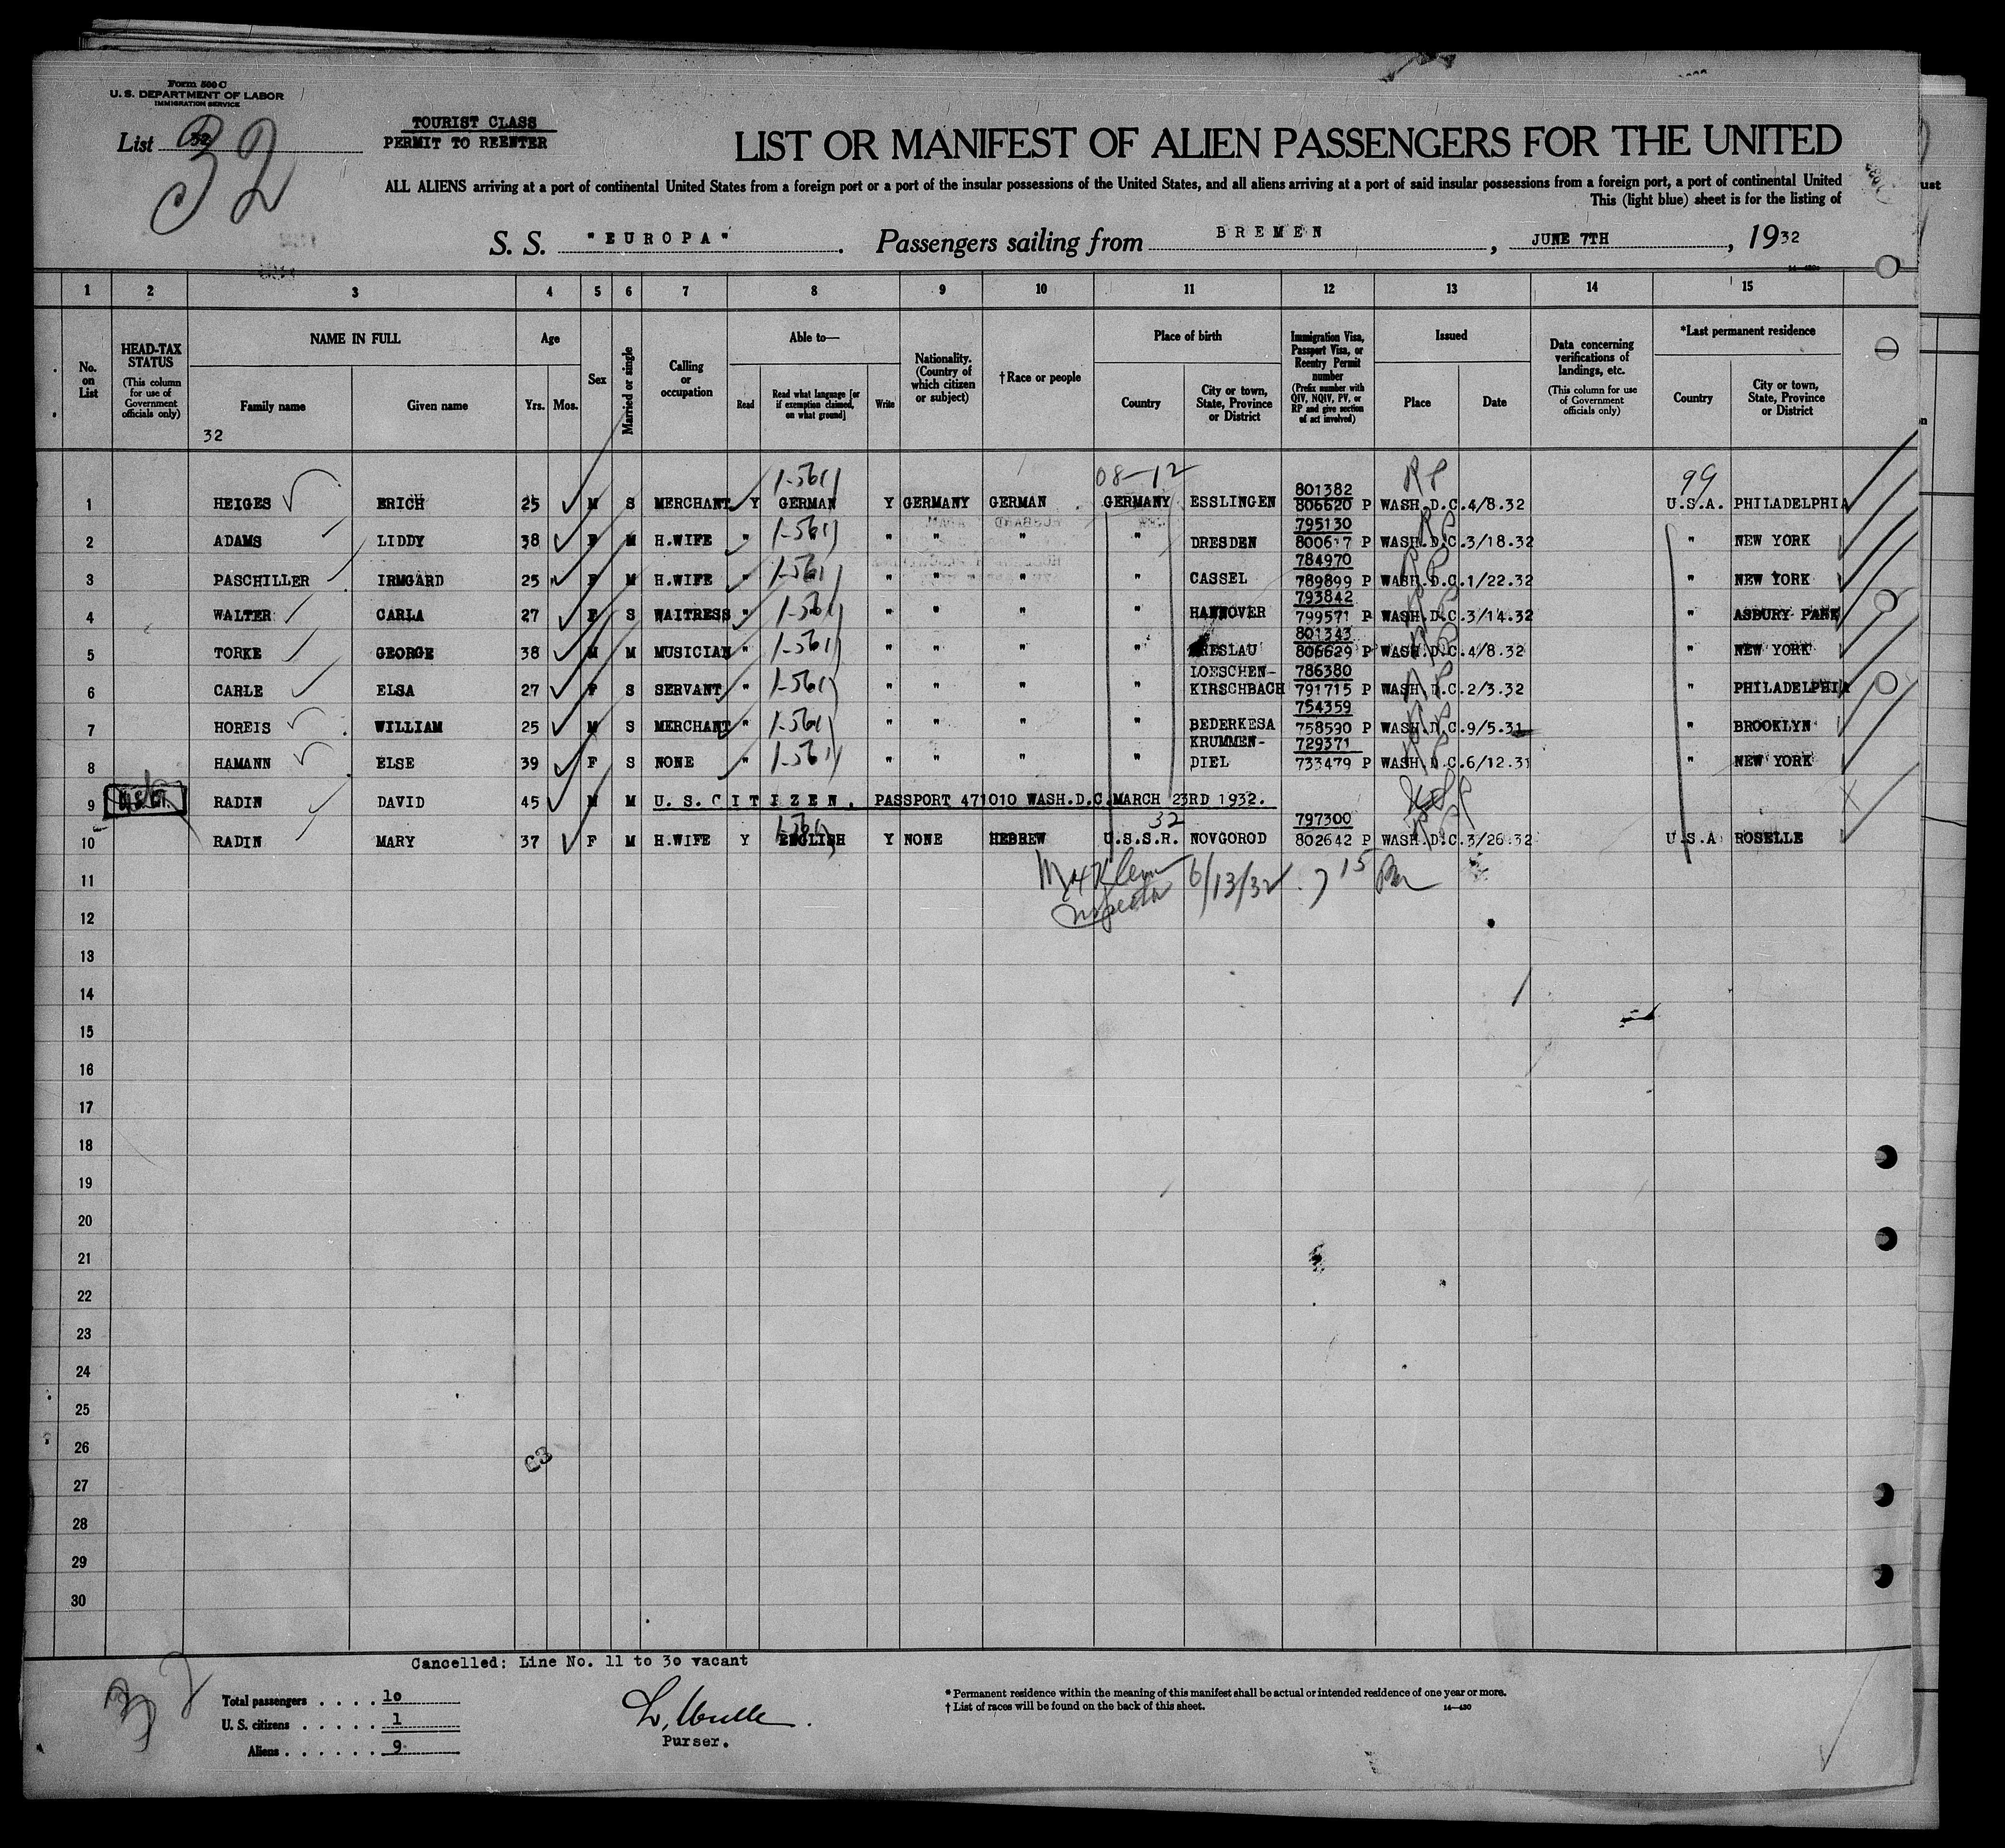 Form 500 C
U. S. DEPARTMENT OF LABOR
IMMIGRATION SERVICE
List 32
32
TOURIST CLASS
PERMIT TO REENTER
LIST OR MANIFEST OF ALIEN PASSENGERS FOR THE UNITED
ALL ALIENS arriving at a port of continental United States from a foreign port or a port of the insular possessions of the United States, and all aliens arriving at a port of said insular possessions from a foreign port, a port of continental United
This (light blue) sheet is for the listing of
S. S. "EUROPA". Passengers sailing from BREMEN, JUNE 7TH, 1932
1 2 3 4 5 6 7 8 9 10 11 12 13 14 15
No. on List
HEAD-TAX STATUS (This column for use of Government officials only)
NAME IN FULL
Family name Given name
32
Age
Yrs. Mos.
Sex
Married or single
Calling or occupation
Able to—
Read
Read what language [or if exemption claimed, on what ground]
Write
Nationality. (Country of which citizen or subject)
†Race or people
Place of birth
Country
City or town, State, Province or District
Immigration Visa, Passport Visa, or Reentry Permit number (Prefix number with QIV, NQIV, PV, or RP and give section of act involved)
Issued
Place Date
Data concerning verifications of landings, etc. (This column for use of Government officials only)
*Last permanent residence
Country
City or town, State, Province or District
08-12 RP 99
1 HEIGES ERICH 25 M S MERCHANT Y GERMAN Y GERMANY GERMAN GERMANY ESSLINGEN 801382 806620 P WASH.D.C. 4/8.32 U.S.A. PHILADELPHIA
2 ADAMS LIDDY 38 F M H.WIFE " " " " " DRESDEN 795130 P WASH.D.C. 3/18.32 " NEW YORK
3 PASCHILLER IRMGARD 25 F M H.WIFE " " " " " CASSEL 784970 789899 P WASH.D.C. 1/22.32 " NEW YORK
4 WALTER CARLA 27 F S WAITRESS " " " " " HANNOVER 793842 799571 P WASH.D.C. 3/14.32 " ASBURY PARK
5 TORKE GEORGE 38 M M MUSICIAN " " " " BRESLAU 801343 806629 P WASH.D.C. 4/8.32 " NEW YORK
6 CARLE ELSA 27 F S SERVANT " " " " " LOESCHEN-KIRSCHBACH 786380 791715 P WASH.D.C. 2/3.32 " PHILADELPHIA
7 HOREIS WILLIAM 25 M S MERCHANT " " " " " BEDERKESA 754359 758590 P WASH.D.C. 9/5.31 " BROOKLYN
8 HAMANN ELSE 39 F S NONE " " " " " KRUMMEN-DIEL 729371 733479 P WASH.D.C. 6/12.31 " NEW YORK
9 RADIN DAVID 45 M M U.S.CITIZEN, PASSPORT 471010 WASH.D.C. MARCH 23RD 1932.
32
10 RADIN MARY 37 F M H.WIFE Y ENGLISH Y NONE HEBREW U.S.S.R. NOVGOROD 797300 802642 P WASH.D.C. 3/26.32 U.S.A ROSELLE
Inspector 6/13/32
11
12
13
14
15
16
17
18
19
20
21
22
23
24
25
26
27
28
29
30
Cancelled: Line No. 11 to 30 vacant
32
Total passengers . . . . 10
U. S. citizens . . . . . 1
Aliens . . . . . . 9
Purser.
* Permanent residence within the meaning of this manifest shall be actual or intended residence of one year or more.
† List of races will be found on the back of this sheet.
14—430